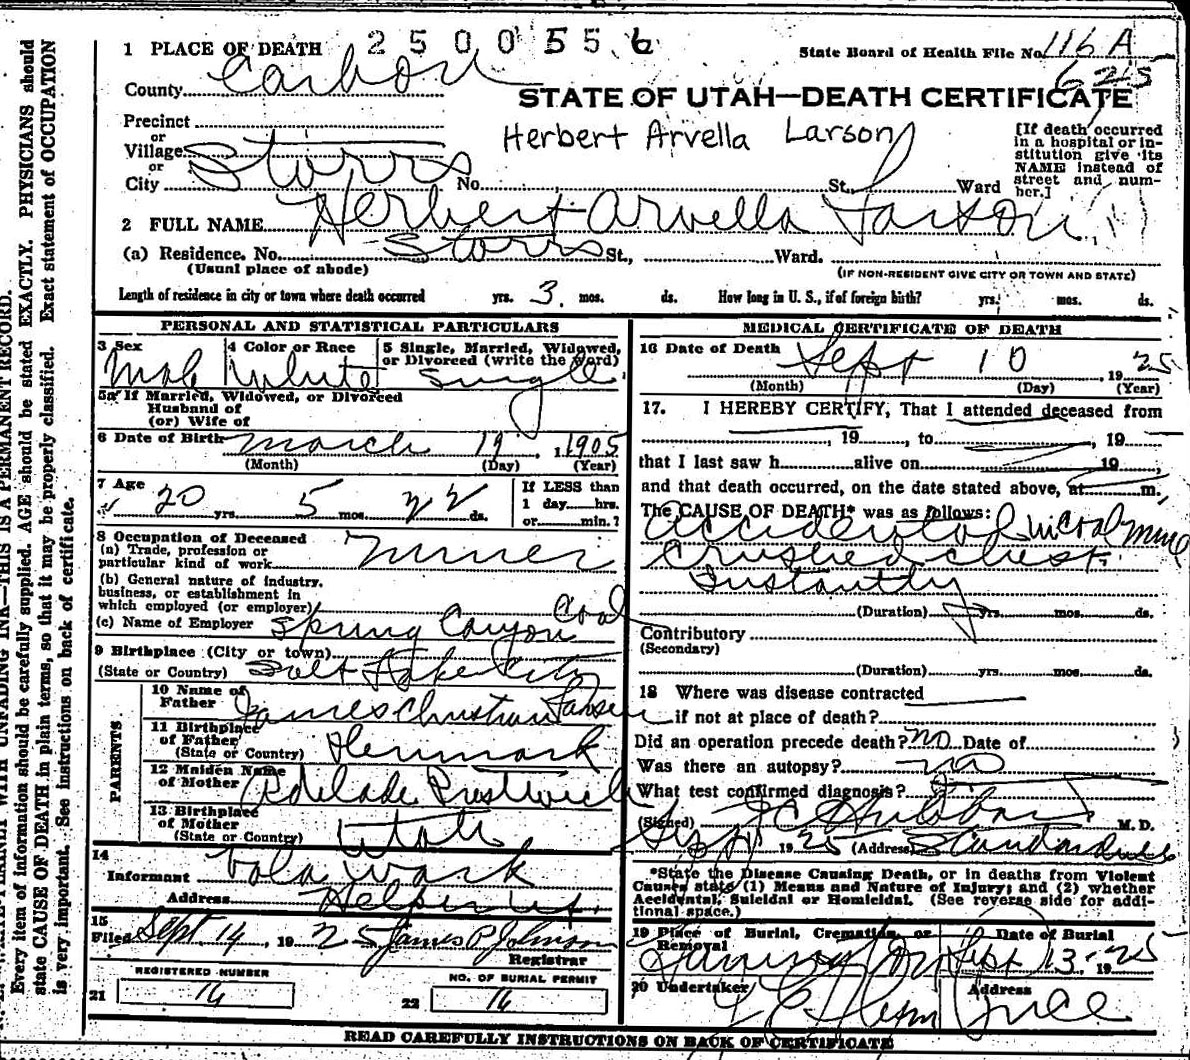 2500556
1 PLACE OF DEATH
State Board of Health File No. 116 A
625
County Carbon
STATE OF UTAH—DEATH CERTIFICATE
Precinct
or
Herbert Arvella Larson
[If death occurred
in a hospital or in-
stitution give its
NAME instead of
street and num-
ber.]
Village Storrs
or
City No. St. Ward
2 FULL NAME Herbert Arvella Larson
(a) Residence. No. Storrs St., Ward.
(Usual place of abode)
(IF NON-RESIDENT GIVE CITY OR TOWN AND STATE)
Length of residence in city or town where death occurred yrs. 3 mos. ds. How long in U. S., if of foreign birth? yrs. mos. ds.
PERSONAL AND STATISTICAL PARTICULARS
3 Sex
Male
4 Color or Race
White
5 Single, Married, Widowed,
or Divorced (write the word)
Single
5a If Married, Widowed, or Divorced
Husband of
(or) Wife of
6 Date of Birth March 19, 1905
(Month) (Day) (Year)
7 Age
20 yrs. 5 mos. 22 ds.
If LESS than
1 day hrs.
or min.?
8 Occupation of Deceased
(a) Trade, profession or
particular kind of work Miner
(b) General nature of industry,
business, or establishment in
which employed (or employer) Coal
(c) Name of Employer Spring Canyon
9 Birthplace (City or town)
(State or Country) Salt Lake City
PARENTS
10 Name of
Father James Christian Larsen
11 Birthplace
of Father
(State or Country) Denmark
12 Maiden Name
of Mother Adelade Prestwich
13 Birthplace
of Mother
(State or Country) Utah
14
Informant
Address Helper Ut.
15
Filed Sept 14, 1925 James P Johnson
Registrar
REGISTERED NUMBER
21 14
NO. OF BURIAL PERMIT
22 14
MEDICAL CERTIFICATE OF DEATH
16 Date of Death Sept 10, 1925
(Month) (Day) (Year)
17. I HEREBY CERTIFY, That I attended deceased from
, 19 , to , 19
that I last saw h alive on 19 ,
and that death occurred, on the date stated above, at m.
The CAUSE OF DEATH* was as follows:
Accidental in Coal Mine
Crushed chest.
Instantly
(Duration) yrs. mos. ds.
Contributory
(Secondary)
(Duration) yrs. mos. ds.
18 Where was disease contracted
if not at place of death?
Did an operation precede death? no Date of
Was there an autopsy? no
What test confirmed diagnosis?
(Signed) M. D.
1925 (Address)
*State the Disease Causing Death, or in deaths from Violent
Causes state (1) Means and Nature of Injury; and (2) whether
Accidental, Suicidal or Homicidal. (See reverse side for addi-
tional space.)
19 Place of Burial, Cremation, or
Removal
Date of Burial
Sept 13-1925
20 Undertaker
Address
Price
READ CAREFULLY INSTRUCTIONS ON BACK OF CERTIFICATE
Every item of information should be carefully supplied. AGE should be stated EXACTLY. PHYSICIANS should
state CAUSE OF DEATH in plain terms, so that it may be properly classified. Exact statement of OCCUPATION
is very important. See instructions on back of certificate.
WITH UNFADING INK—THIS IS A PERMANENT RECORD.